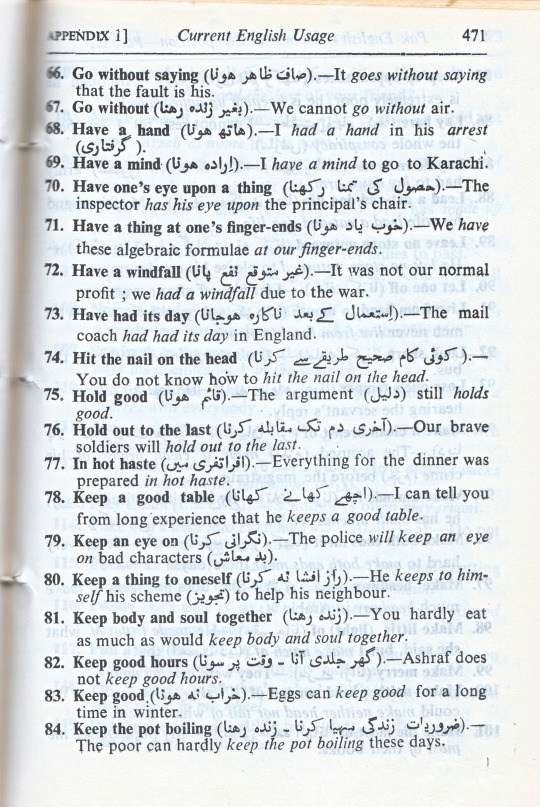 APPENDIX I] Current English Usage 471
66. Go without saying (صاف ظاهر هونا).—It goes without saying
that the fault is his.
67. Go without (بغیر زنده رهنا).—We cannot go without air.
68. Have a hand (هاتھ هونا).—I had a hand in his arrest
(گرفتاری).
69. Have a mind (اراده هونا).—I have a mind to go to Karachi.
70. Have one's eye upon a thing (حصول کی تمنا رکھنا).—The
inspector has his eye upon the principal's chair.
71. Have a thing at one's finger-ends (خوب یاد هونا).—We have
these algebraic formulae at our finger-ends.
72. Have a windfall (غیر متوقع نفع پانا).—It was not our normal
profit ; we had a windfall due to the war.
73. Have had its day (استعمال کے بعد ناکاره هوجانا).—The mail
coach had had its day in England.
74. Hit the nail on the head (کوئی کام صحیح طریقے سے کرنا).—
You do not know how to hit the nail on the head.
75. Hold good (قائم هونا).—The argument (دلیل) still holds
good.
76. Hold out to the last (آخری دم تک مقابله کرنا).—Our brave
soldiers will hold out to the last.
77. In hot haste (افراتفری میں).—Everything for the dinner was
prepared in hot haste.
78. Keep a good table (اچھے کھانے کھانا).—I can tell you
from long experience that he keeps a good table.
79. Keep an eye on (نگرانی کرنا).—The police will keep an eye
on bad characters (بد معاش).
80. Keep a thing to oneself (راز افشا نه کرنا).—He keeps to him-
self his scheme (تجویز) to help his neighbour.
81. Keep body and soul together (زنده رهنا).—You hardly eat
as much as would keep body and soul together.
82. Keep good hours (گھر جلدی آنا - وقت پر سونا).—Ashraf does
not keep good hours.
83. Keep good (خراب نه هونا).—Eggs can keep good for a long
time in winter.
84. Keep the pot boiling (ضروریات زندگی مہیا کرنا - زنده رهنا).—
The poor can hardly keep the pot boiling these days.